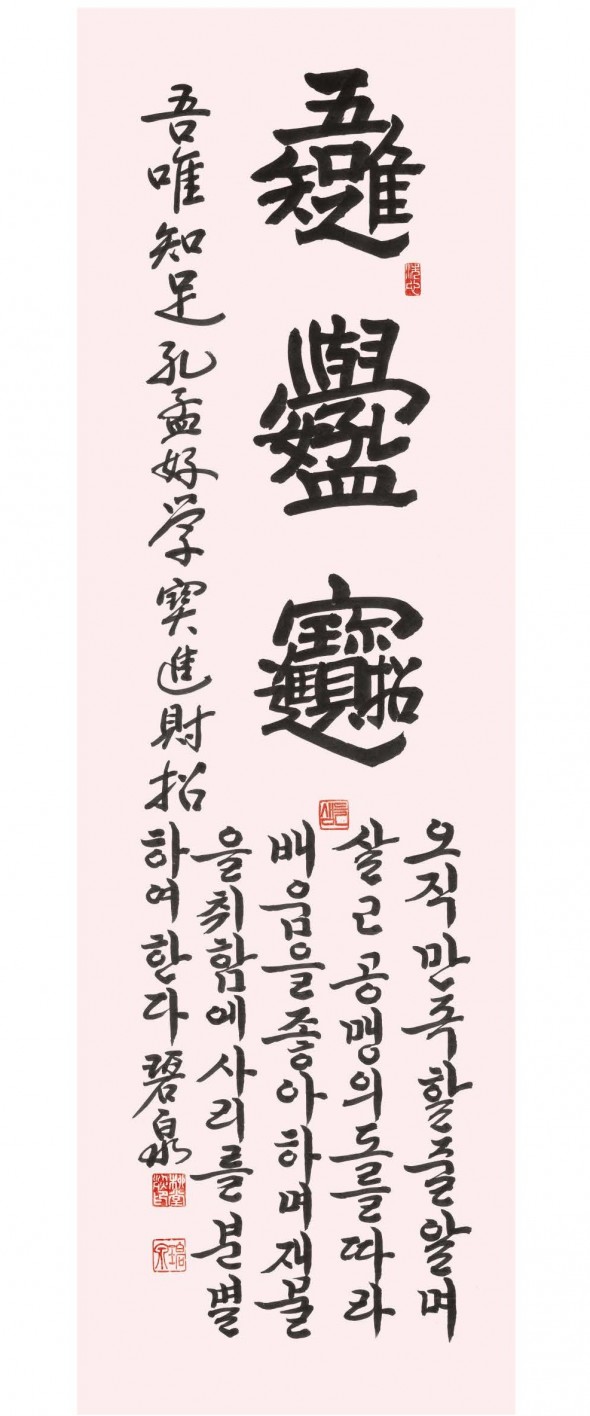 吾唯知足
孔孟好學
招財進寶
吾唯知足孔孟好学寶進財招
오직만족할줄알며
살고공맹의도를따라
배움을좋아하며재물
을취함에사리를분별
하여한다 碧泉